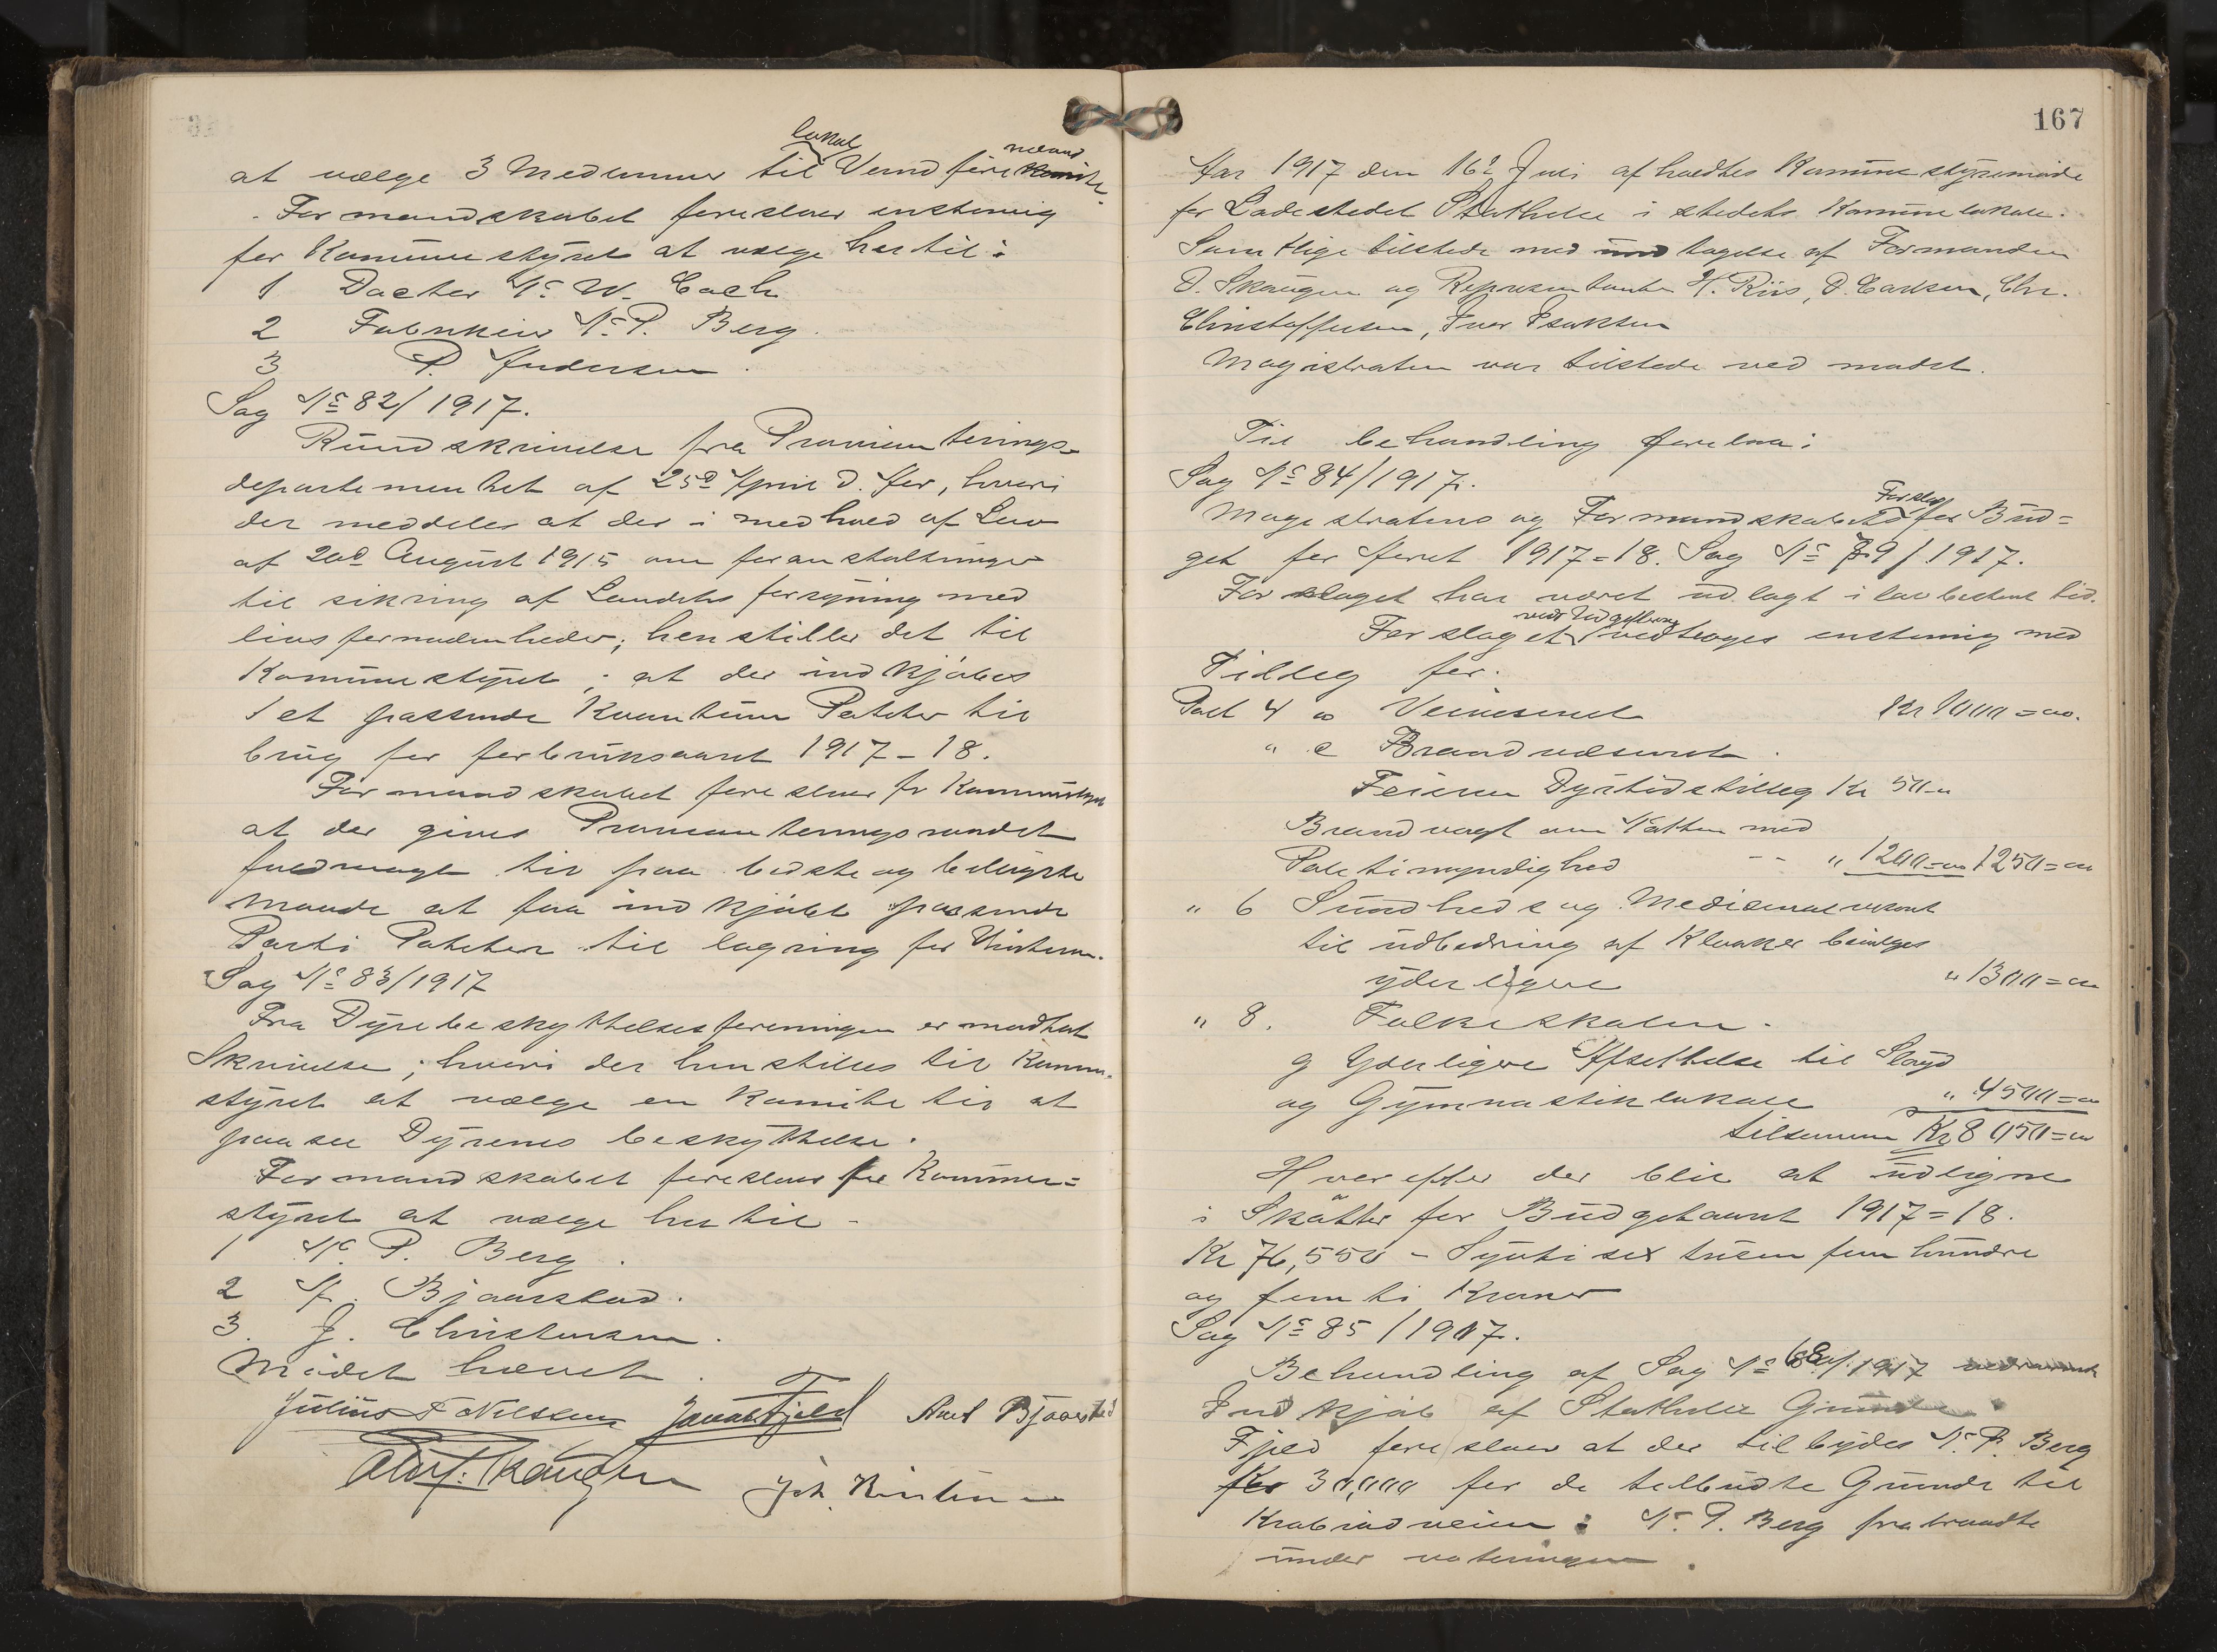 at vælge 3 Medlemmer til lokal Værnd før nævnd
Formandskabet foreslaar enstemig
for Kommunestyret at vælge hertil:
1 Docter N. W. Cach
2 Fabrikeier N. P. Berg.
3 P. Andersen.
Sag No 82/1917.
Rundskrivelse fra Provianterings-
departementet af 25d April d. Aar, hvori
der meddeles at der i medhold af Lov
af 20d August 1915 om foranstaltninger
til sikring af Landets forsyning med
livsfornødenheder; henstiller det til
Kommunestyret, at der indkjøbes
et passende Kvantum Poteter til
brug for forbruksaaret 1917-18.
Formandskabet foreslaar for Kommunestyret
at der gives Provianteringsraadet
fuldmagt til paa bedste og billigste
Maade at faa indkjøbt passende
Parti Poteter til lagring for Vinteren.
Sag No 83/1917
Fra Dyrebeskyttelsesforeningen er modtat
Skrivelse; hvori der henstilles til Kommu-
styret at vælge en Komite til at
paasee Dyrenes beskyttelse.
Formandskabet foreslaar for Kommune=
styret at vælge hertil -
1 N. P. Berg.
2 A. Bjaarstad.
3. J. Christensen.
Mødet hævet.
Julius F Nilssen Axel Bjaarstad
Oluf. Skaugen Joh. Kristensen
167
Aar 1917 den 16d Juni afholdtes Kommunestyremøde
for Ladestedet Stathelle i stedets Kommunelokale.
Samtlige tilstede med undtagelse af Formanden
O. Skaugen og Representanter H. Riis, O. Carlsen, Chr.
Christoffersen, Iver Isaksen
Magistraten var tilstede ved mødet.
Til behandling forelaa:
Sag No 84/1917.
Magistratens og Formandskabets Forslag for Bud=
get for Aaret 1917=18. Sag No 79/1917.
Forslaget har været udlagt i lovbestemt tid.
Forslaget vedr Udgifterne vedtoges enstemig med
Tillæg for.
Post 4 a Veivæsenet Kr 1000=00.
" c Brandvæsenet.
Feieren Dyrtidstillæg Kr 50=
Brandvagt om Natten med
Politimyndighed " 1200=00 1250=00
" 6 Sundheds og Medicinalvæsenet
til udbedring af Kloaker bevilges
yderligere " 1300=00
" 8. Folkeskolen.
g Yderligere Afsættelse til Sløyd
og Gymnastiklokale " 4500=00
tilsammen Kr 8 050=00
Hvorefter der blir at udligne
i Skatter for Budgetaaret 1917=18.
Kr 76,550 - Syvti sex tusen fem hundre
og femti Kroner
Sag No 85/1917.
Behandling af Sag No 68/1917
Indkjøb af Stathelle Grunde
Fjeld foreslaar at der tilbydes N. P. Berg
Kr 30,000 for de tilbudte Grunde til
Krabindveien. N. P. Berg fratraadte
under voteringen.